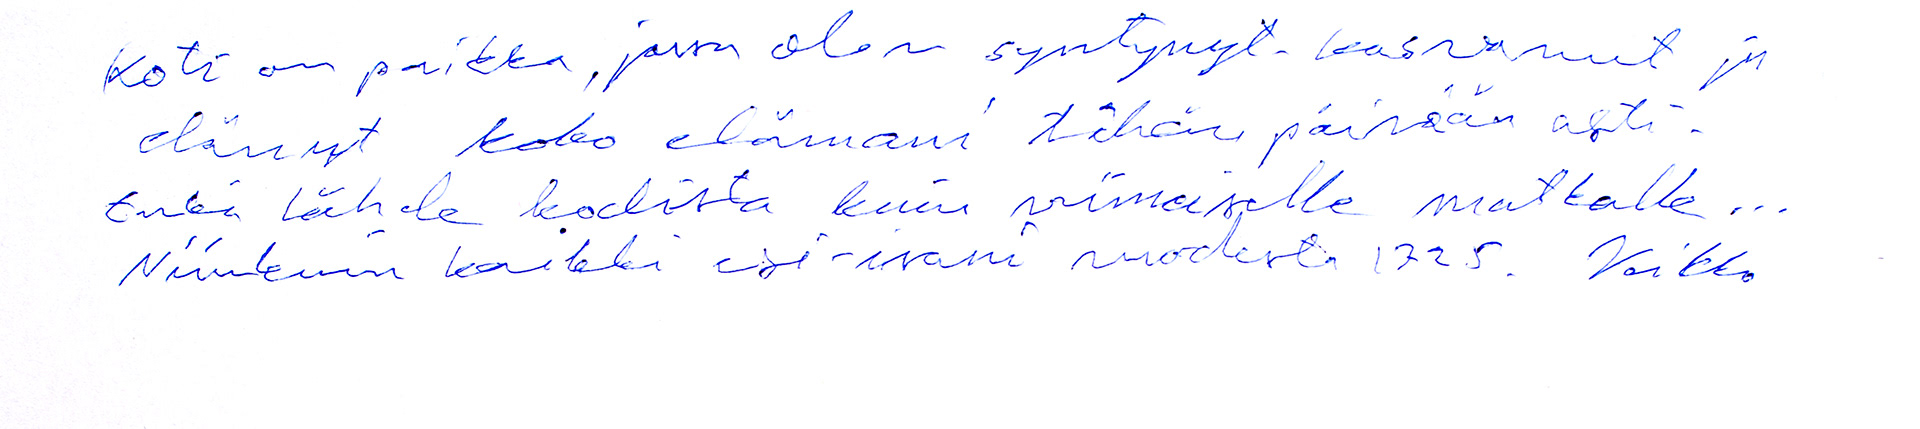 Koti on paikka, jossa olen syntynyt - kasvanut ja
elänyt koko elämäni tähän päivään asti.
Enkä lähde kodista kuin viimeiselle matkalle...
Niinkuin kaikki esi-isäni vuodesta 1725. Veikko